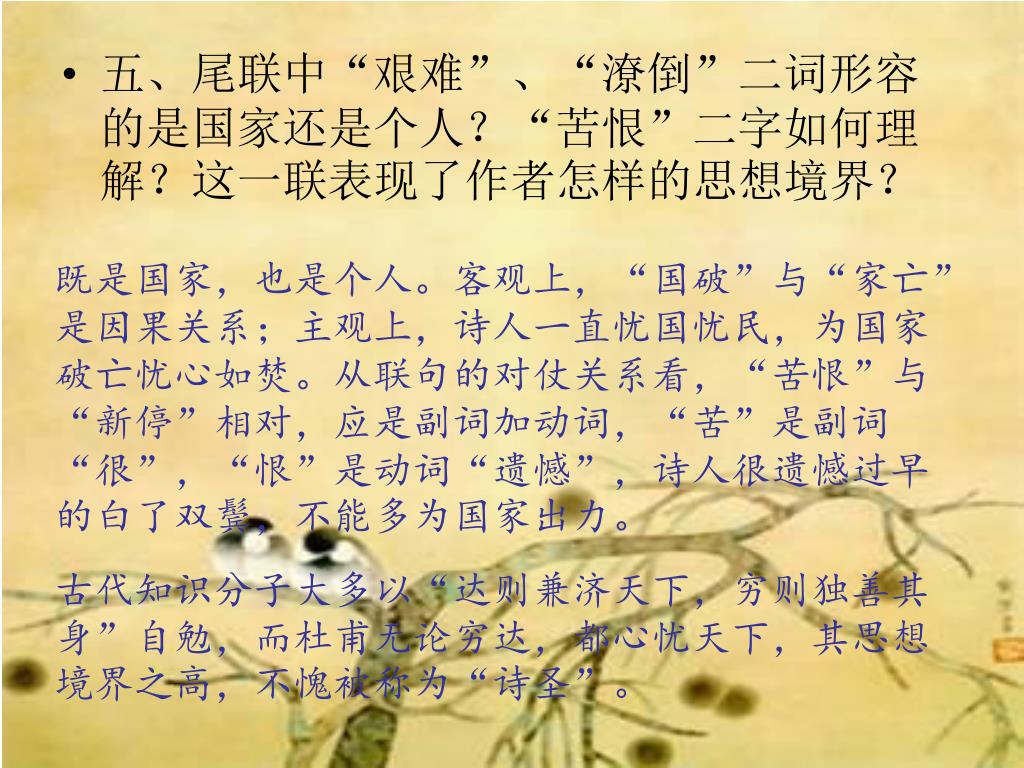 • 五、尾联中“艰难”、“潦倒”二词形容
的是国家还是个人？“苦恨”二字如何理
解？这一联表现了作者怎样的思想境界？
既是国家，也是个人。客观上，“国破”与“家亡”
是因果关系；主观上，诗人一直忧国忧民，为国家
破亡忧心如焚。从联句的对仗关系看，“苦恨”与
“新停”相对，应是副词加动词，“苦”是副词
“很”，“恨”是动词“遗憾”，诗人很遗憾过早
的白了双鬓，不能多为国家出力。
古代知识分子大多以“达则兼济天下，穷则独善其
身”自勉，而杜甫无论穷达，都心忧天下，其思想
境界之高，不愧被称为“诗圣”。